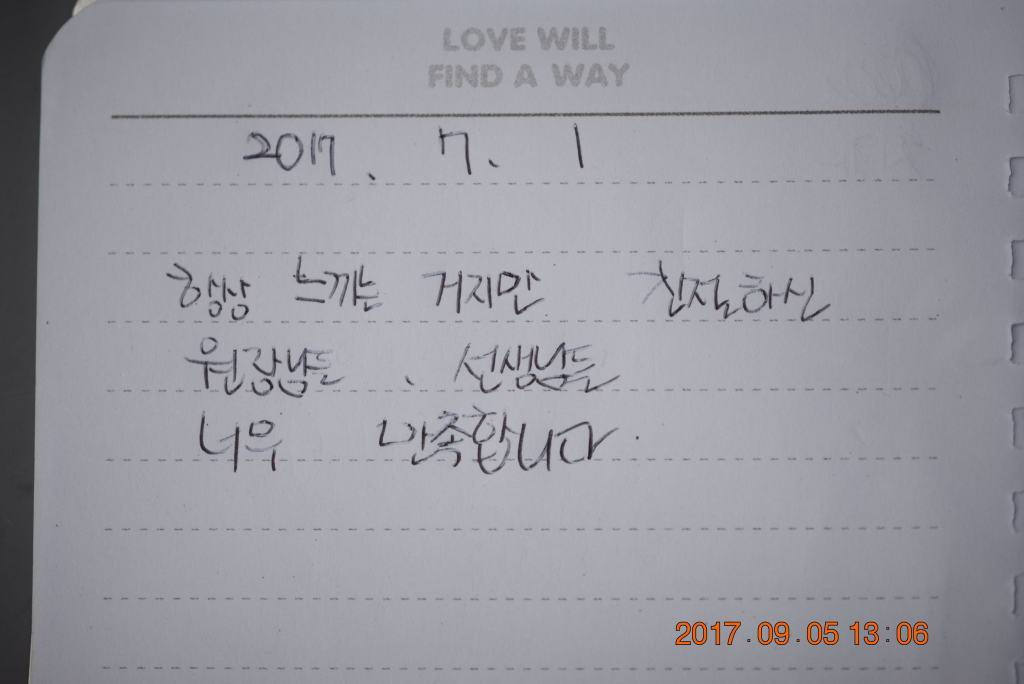 LOVE WILL
FIND A WAY
2017. 7. 1
항상 느끼는 거지만 친절하신
원장님들, 선생님들
너무 만족합니다.
2017.09.05 13:06